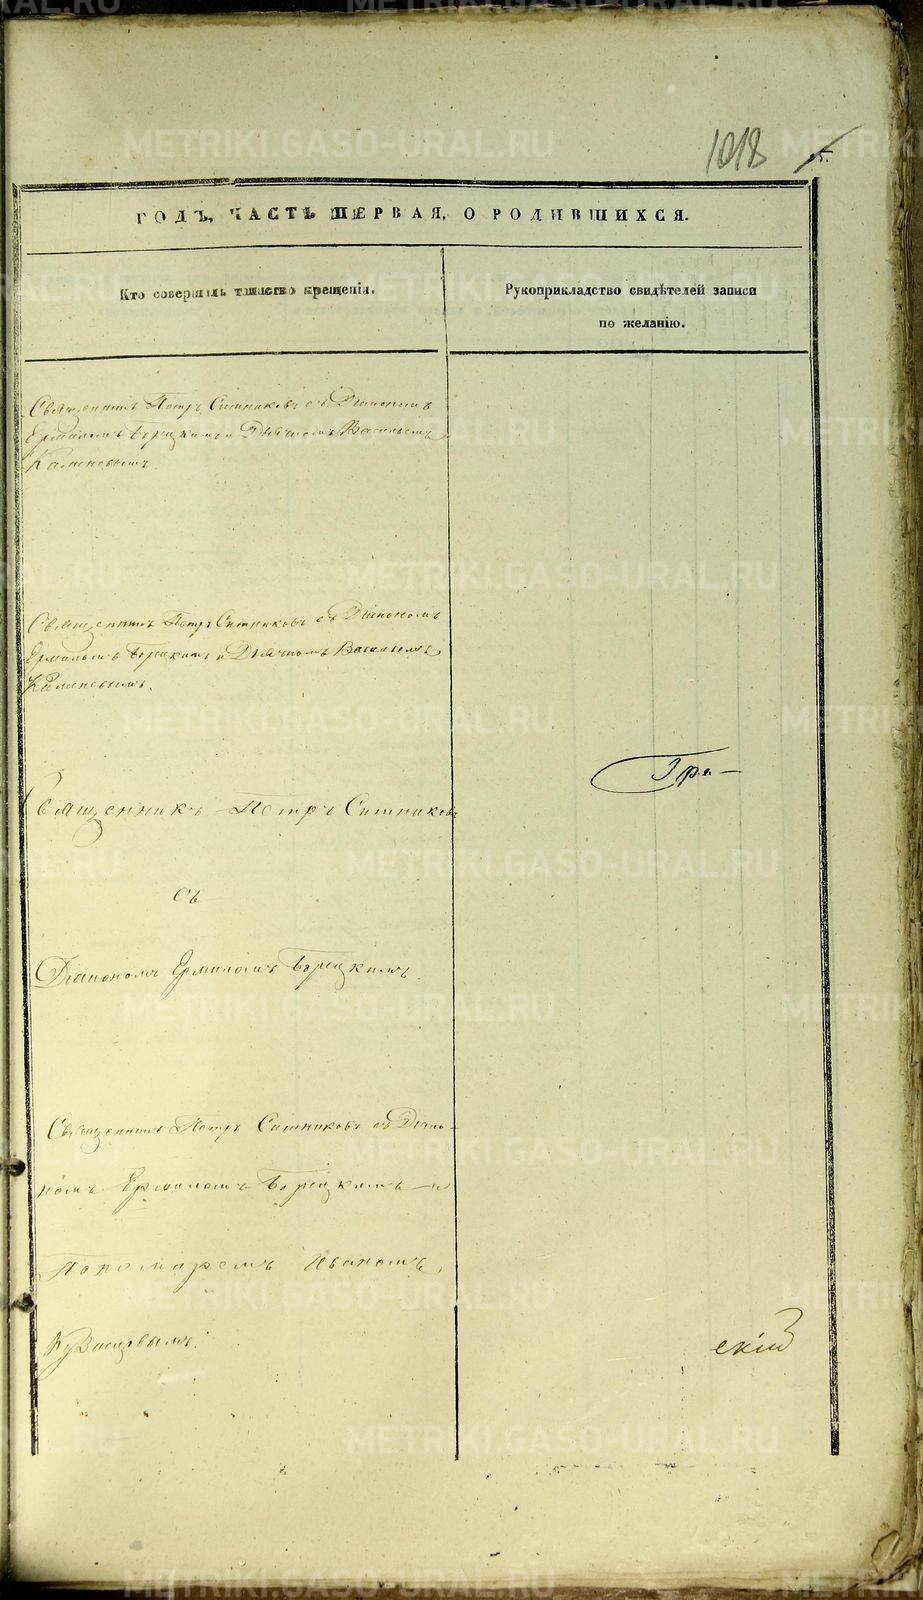 1018
ГОДЪ, ЧАСТЬ ПЕРВАЯ, О РОДИВШИХСЯ.
Кто совершилъ таинство крещенія.
Рукоприкладство свидѣтелей записи
по желанію.
Священникъ Петръ Ситниковъ съ Діакономъ
Ермиломъ Борецкимъ и Дьячкомъ Васильемъ
Каменевымъ.
Священникъ Петръ Ситниковъ съ Діакономъ
Ермиломъ Борецкимъ и Дьячкомъ Васильемъ
Каменевымъ.
Гри-
Священникъ Петръ Ситниковъ
съ
Діакономъ Ермиломъ Борецкимъ.
Священникъ Петръ Ситниковъ съ Діако-
номъ Ермиломъ Борецкимъ и
Пономаремъ Иваномъ
скій
METRIKI.GASO-URAL.RU